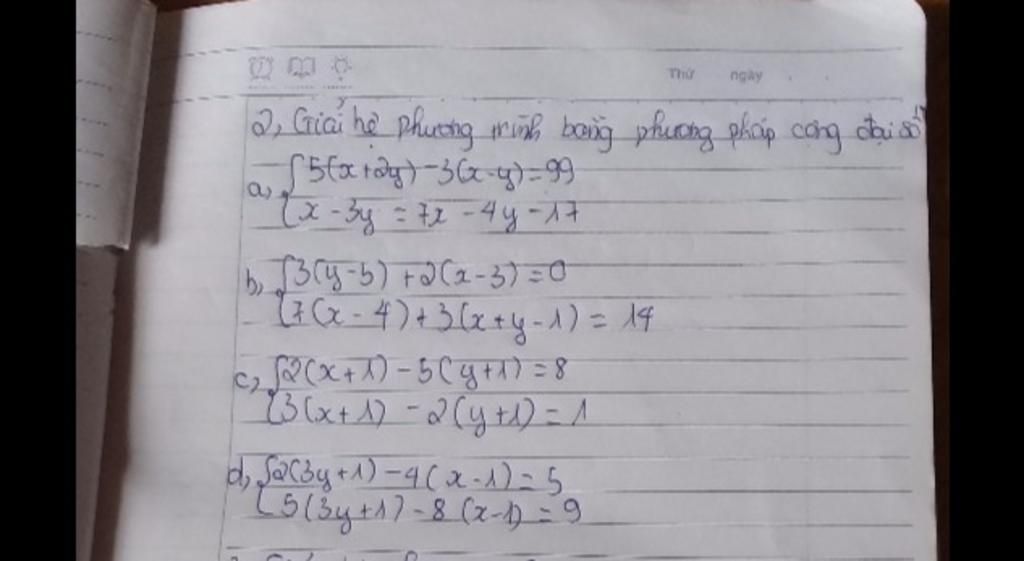 Thứ ngày
2, Giải hệ phương trình bằng phương pháp cộng đại số
a, 5(x+2y) - 3(x-y) = 99
x - 3y = 7x - 4y - 17
b, 3(y-5) + 2(x-3) = 0
7(x - 4) + 3(x+y-1) = 14
c, 2(x+1) - 5(y+1) = 8
3(x+1) - 2(y+1) = 1
d, 2(3y+1) - 4(x-1) = 5
5(3y+1) - 8(x-1) = 9